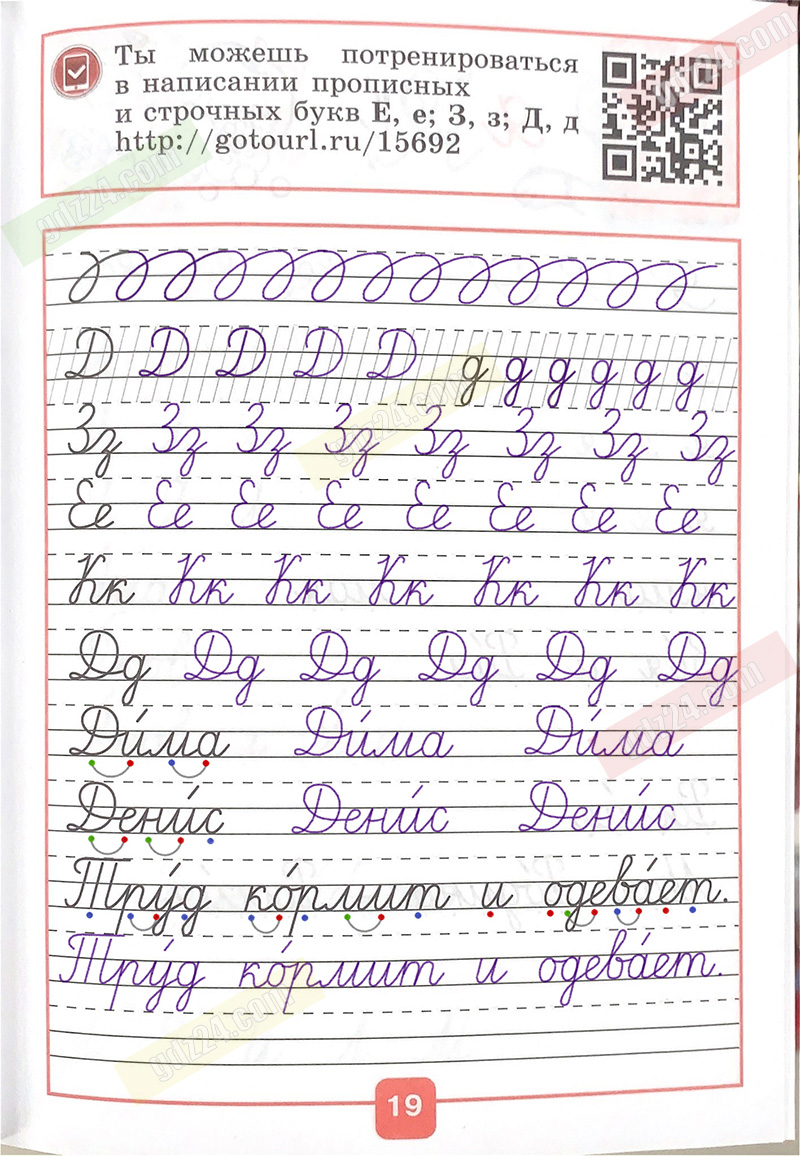 Ты можешь потренироваться
в написании прописных
и строчных букв Е, е; З, з; Д, д
http://gotourl.ru/15692
Д Д Д Д Д д д д д д д
Зз Зз Зз Зз Зз Зз Зз Зз
Ее Ее Ее Ее Ее Ее Ее Ее
Кк Кк Кк Кк Кк Кк Кк
Дд Дд Дд Дд Дд Дд
Ди́ма Ди́ма Ди́ма
Дени́с Дени́с Дени́с
Тру́д ко́рмит и одева́ет.
Тру́д ко́рмит и одева́ет.
19
gdz24.com
gdz24.com
gdz24.com
gdz24.com
gdz24.com